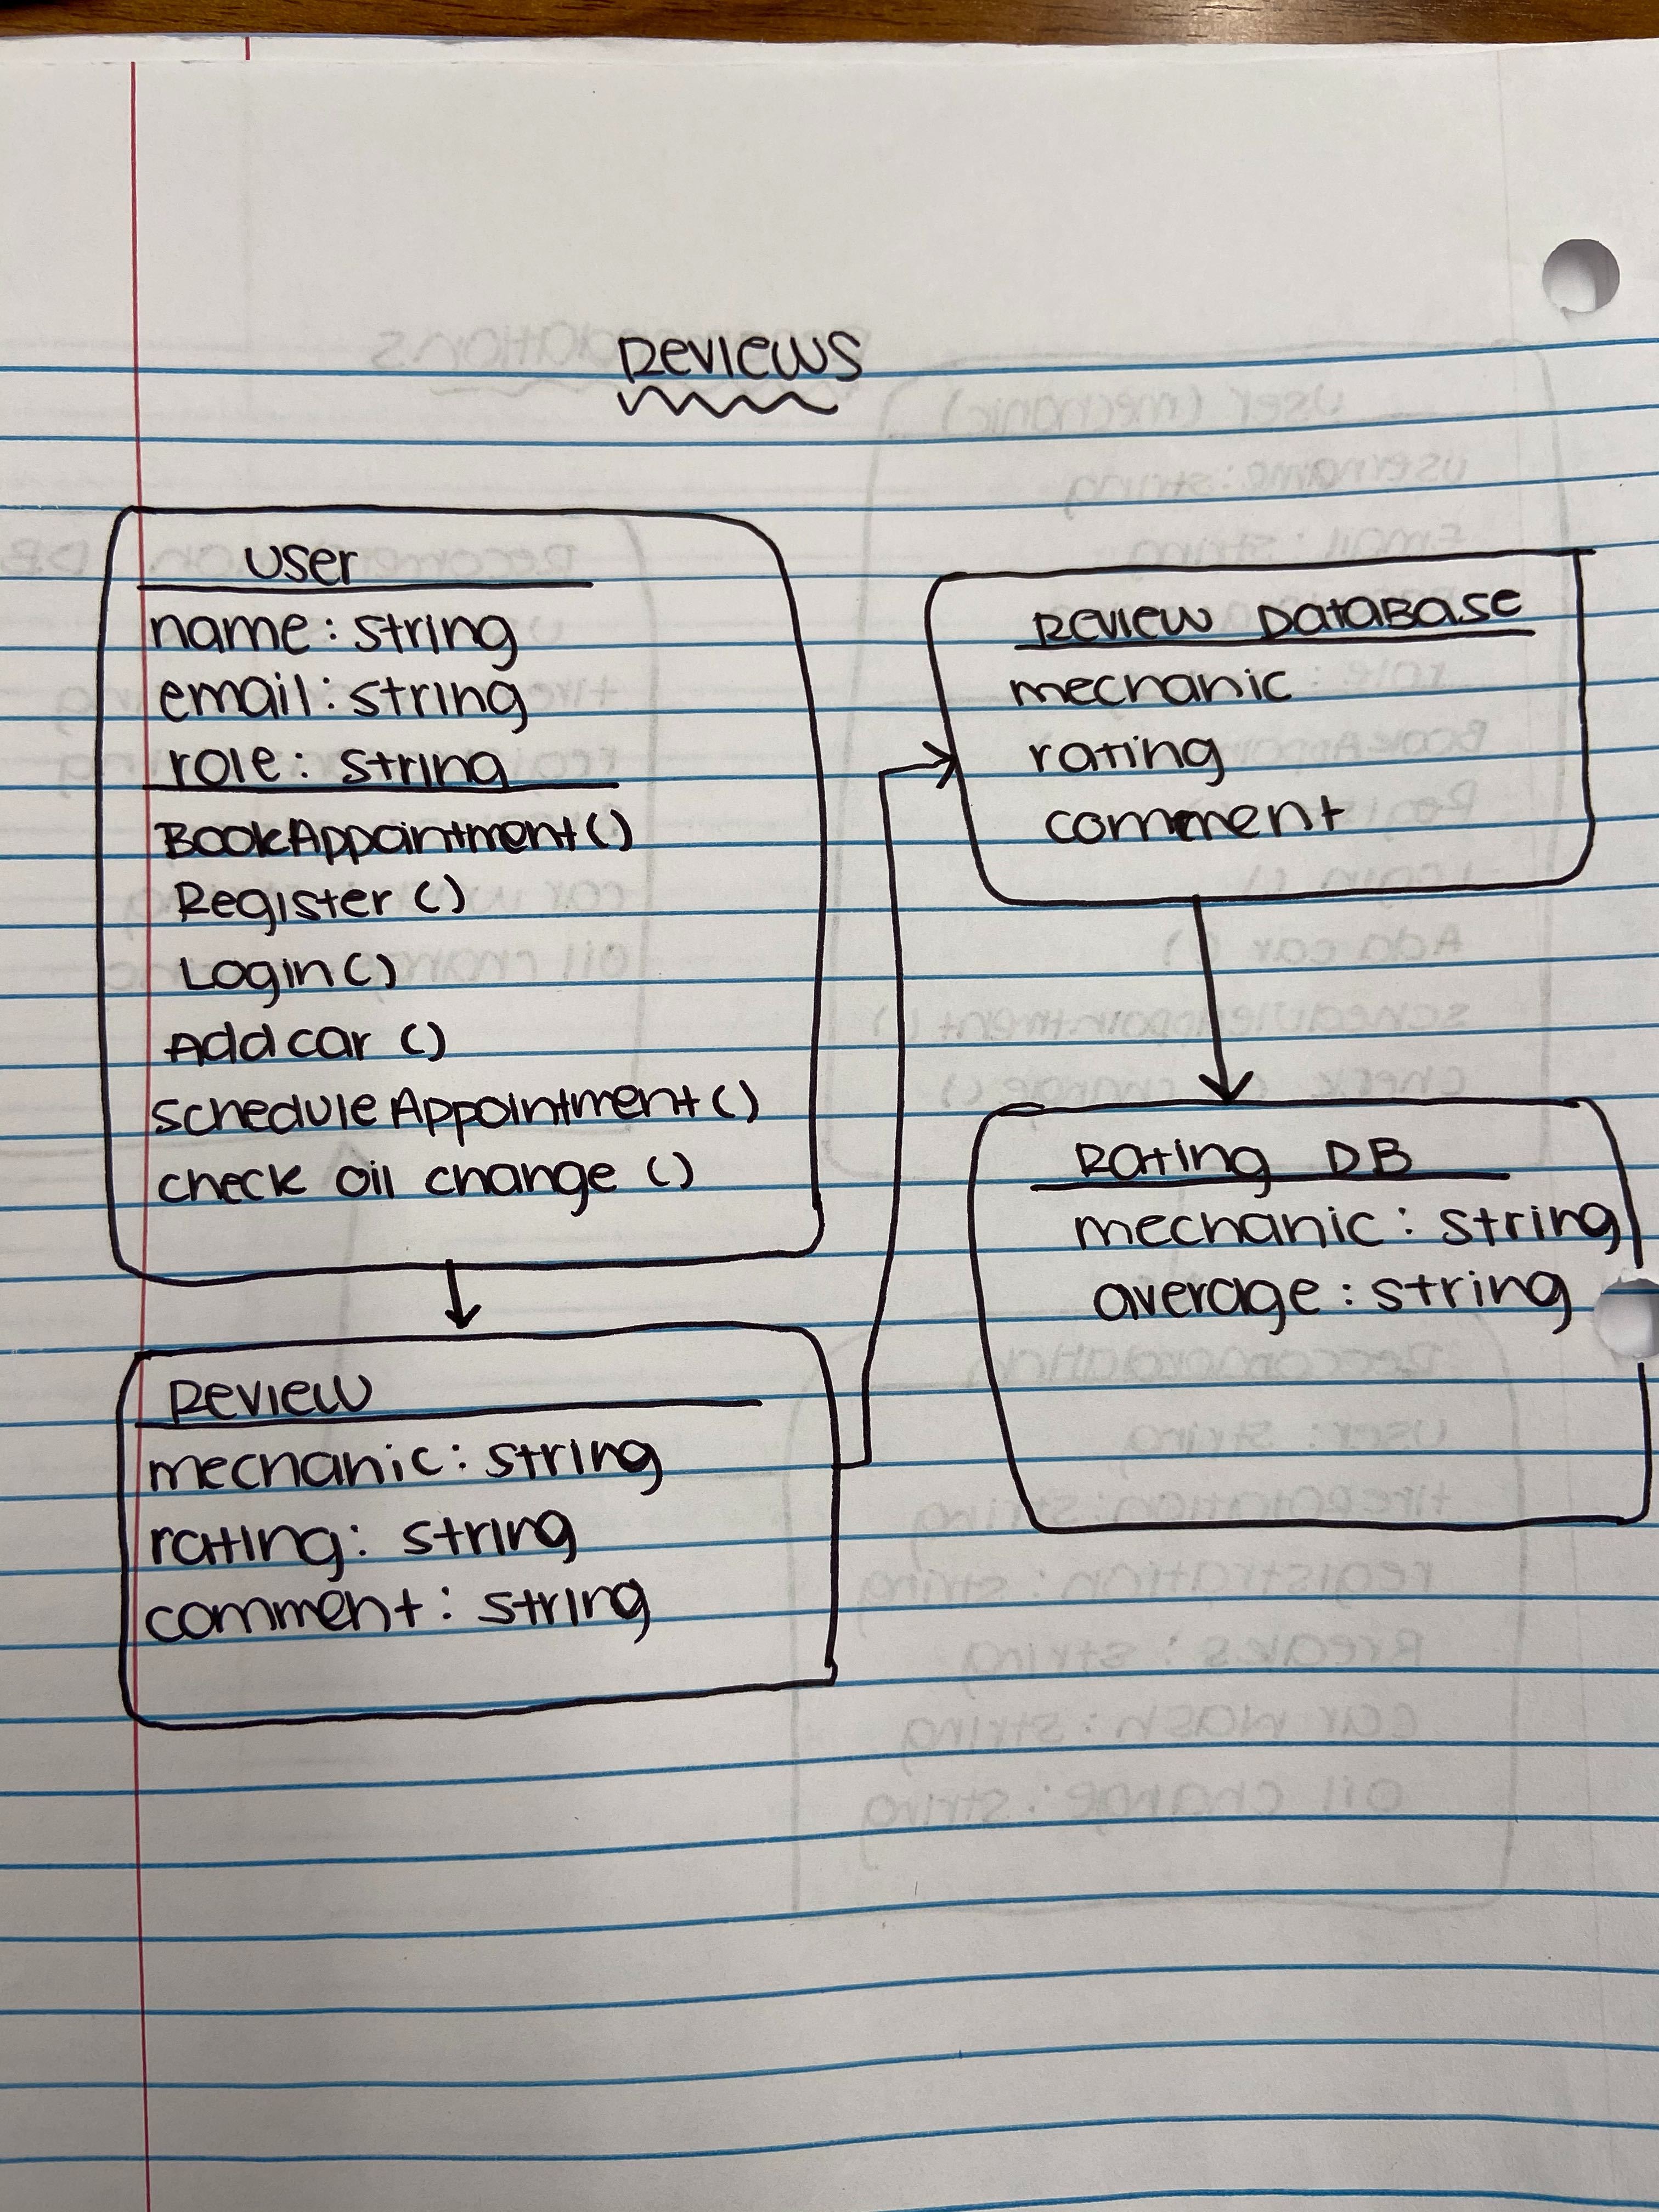 Reviews
User
name: string
email: string
role: string
BookAppointment()
Register ()
Login()
Add car ()
schedule Appointment()
check oil change ()
Review
mechanic: string
rating: string
comment: string
Review DataBase
mechanic
rating
comment
Rating DB
mechanic: string
average: string